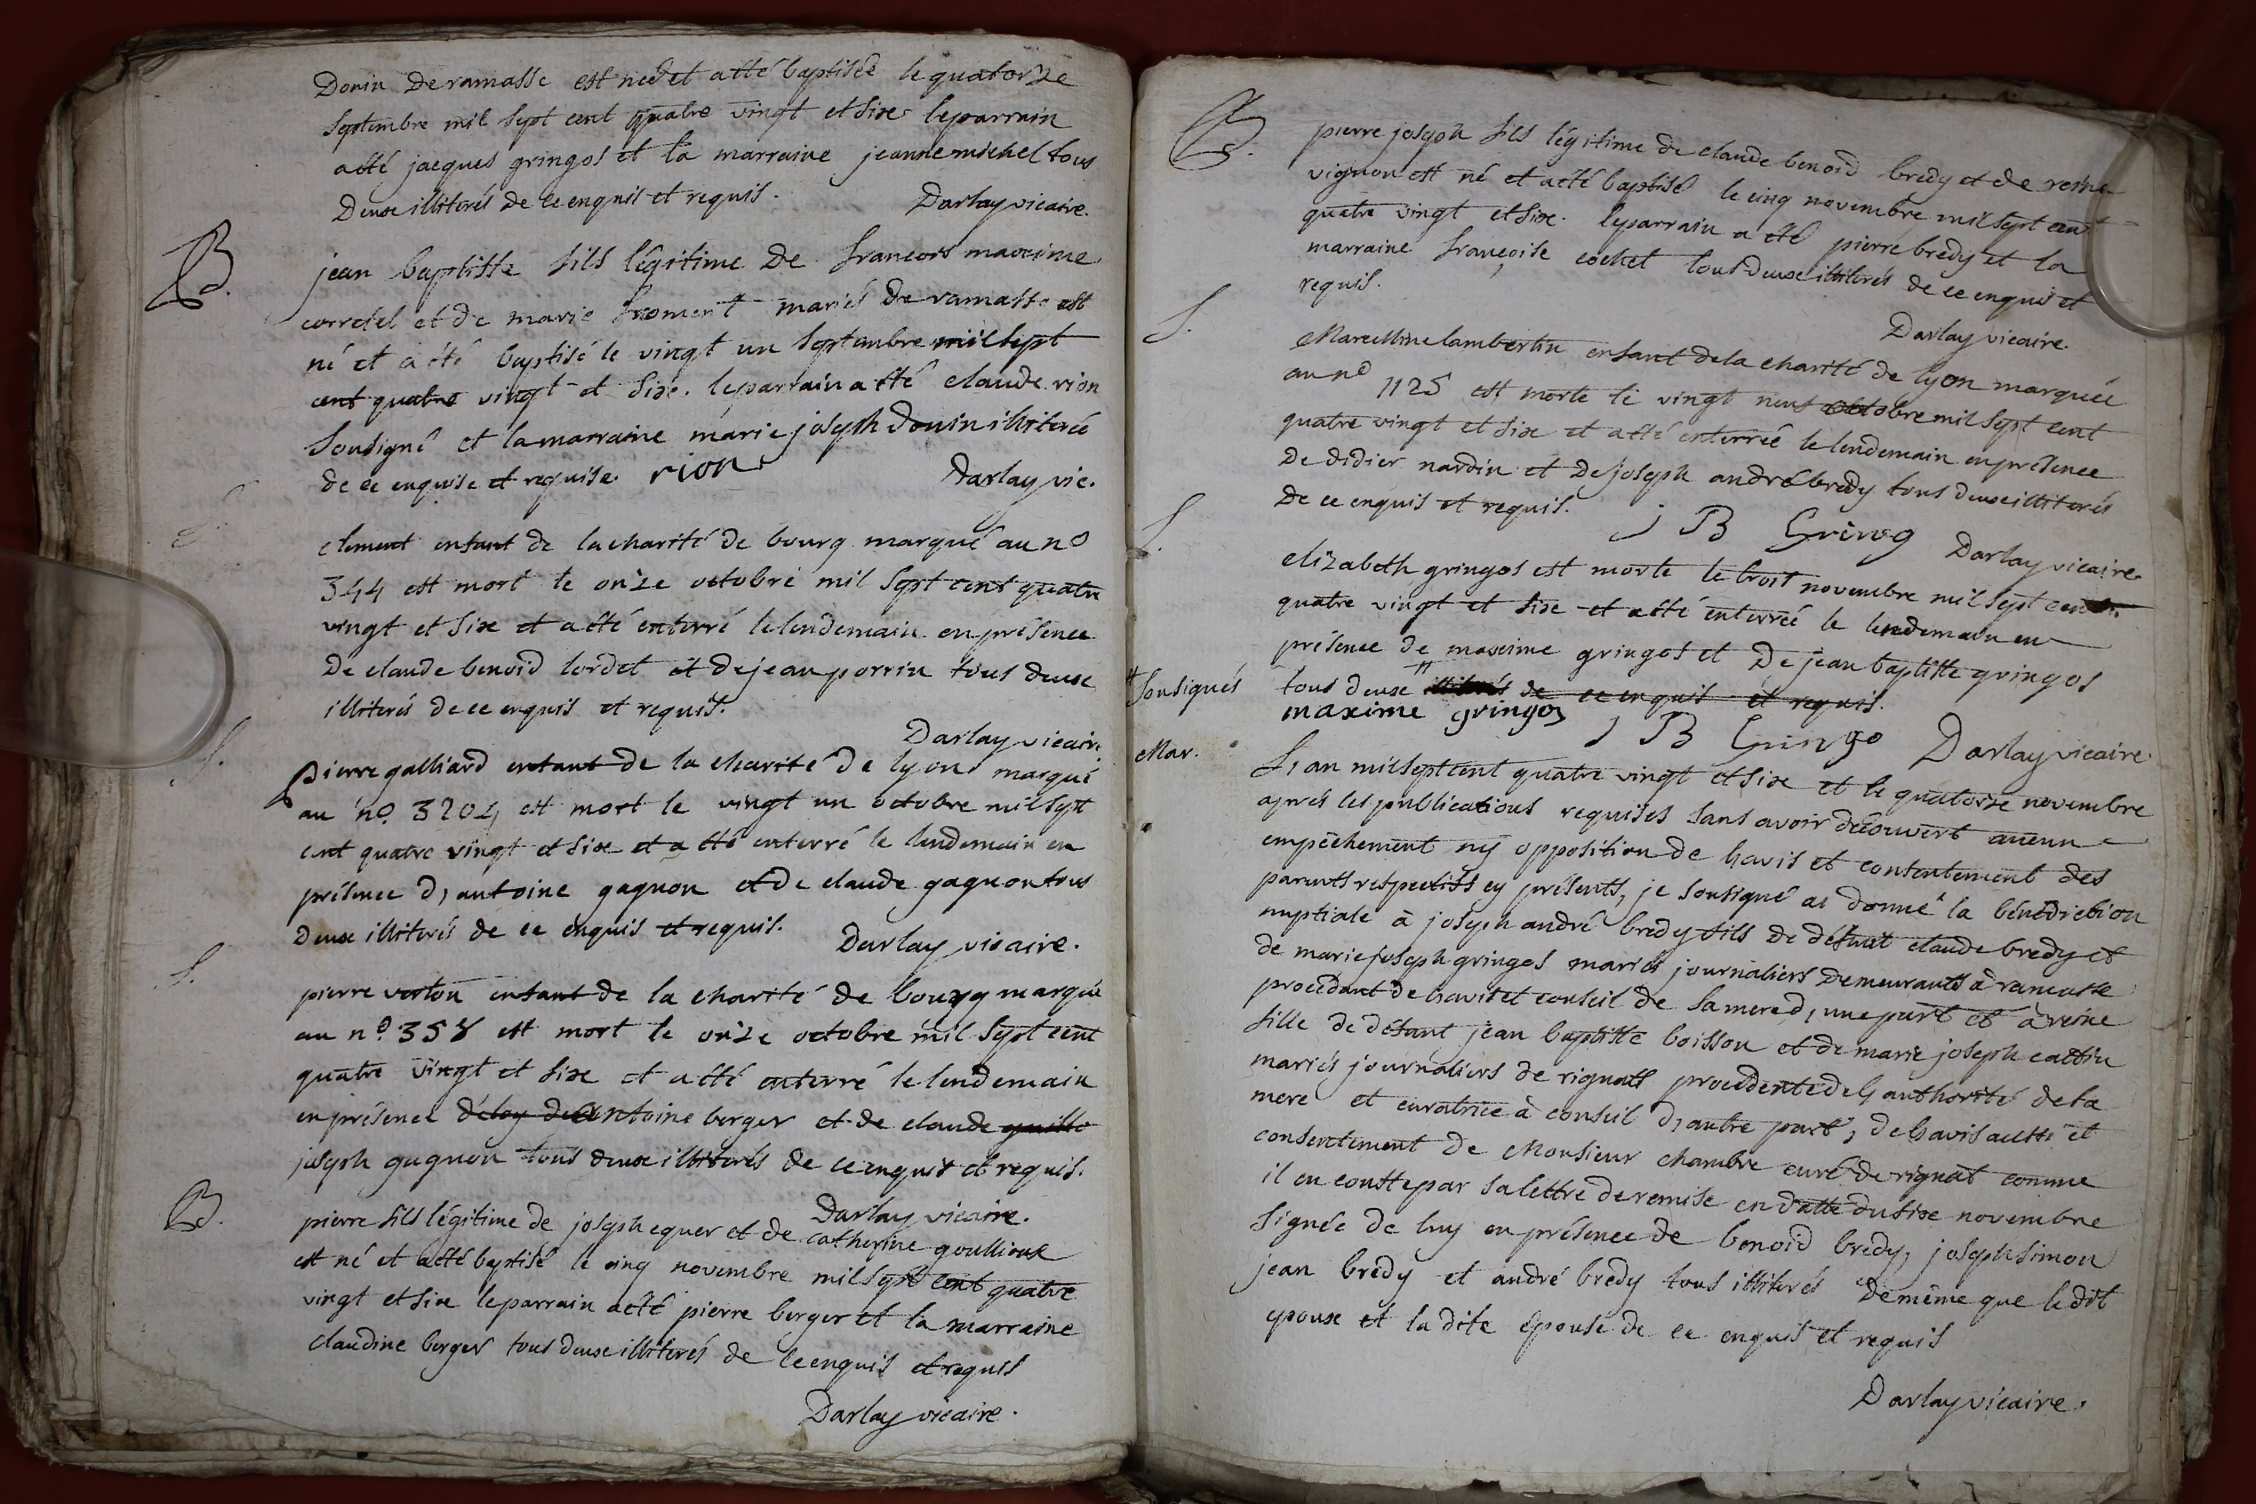 Donin de ramasse est née et a été baptisée le quatorze
septembre mil sept cent quatre vingt et six le parrain
a été jacques gringos et la marraine jeanne michel tous
Deux illiterés de ce enquis et requis.
Darlay vicaire.
B.
jean baptiste fils légitime de francois maxime
corretel et de marie froment mariés de ramasse est
né et a été baptisé le vingt un septembre mil sept
cent quatre vingt et six. le parrain a été claude rion
sousigné et la marraine marie joseph donin illiterée
de ce enquise et requise. rion Darlay vic.
S.
clement enfant de la charité de bourg marqué au no
344 est mort le onze octobre mil sept cent quatre
vingt et six et a été enterré le lendemain en présence
De claude benoid lordet et de jean porrin tous deux
illiterés de ce enquis et requis.
Darlay vicaire
S.
pierre galliard enfant de la charité de lyon marqué
au no. 3204 est mort le vingt un octobre mil sept
cent quatre vingt et six et a été enterré le lendemain en
présence d, antoine gagnon et de claude gagnon tous
deux illiterés de ce enquis et requis.
Darlay vicaire.
S.
pierre verton enfant de la charité de bourg marqué
au no. 358 est mort le onze octobre mil sept cent
quatre vingt et six et a été enterré le lendemain
en présence déloy de antoine berger et de claude guillo
joseph gagnon tous deux illiterés de ce enquis et requis.
Darlay vicaire.
B.
pierre fils légitime de joseph equer et de catherine goullioux
est né et a été baptisé le cinq novembre mil sept cent quatre
vingt et six le parrain a été pierre berger et la marraine
claudine berger tous deux illiterés de ce enquis et requis
Darlay vicaire.
B.
pierre joseph fils légitime de claude benoid bredy et de reine
vignon est né et a été baptisé le cinq novembre mil sept cent
quatre vingt et six. le parrain a été pierre bredy et la
marraine françoise cochet tous deux illiterés de ce enquis et
requis.
Darlay vicaire.
S.
Marcelline lambertin enfant de la charité de lyon marquée
au no 1125 est morte le vingt neuf octobre mil sept cent
quatre vingt et six et a été enterrée le lendemain en présence
De didier nardin et de joseph andré bredy tous deux illiterés
de ce enquis et requis.
j B Gringo Darlay vicaire.
S.
elizabeth gringos est morte le trois novembre mil sept cent
quatre vingt et six et a été enterrée le lendemain en
présence de maxime gringos et De jean baptiste gringos
tous deux " illiterés de ce enquis et requis.
" sousignés
maxime gringos J B Gringo Darlay vicaire
Mar.
L, an mil sept cent quatre vingt et six et le quatorze novembre
après les publications requises sans avoir découvert aucun
empêchement ny opposition de l,avis et contentement des
parents respectifs cy présents, je sousigné ai donné la bénédiction
nuptiale à joseph andré bredy fils de défunt claude bredy et
de marie joseph gringos mariés journaliers demeurants à ramasse
procédant de l,avis et conseil de sa mere d, une part et à reine
fille de défunt jean baptiste boisson et de marie joseph cattin
mariés journaliers de rignat procédente de l, authorité de la
mere et curatrice à conseil d, autre part, de l,avis aussi et
consentement de Monsieur chambre curé de rignat comme
il en conste par sa lettre de remise en datte du six novembre
signée de luy en présence de benoid bredy, joseph simon
jean bredy et andré bredy tous illiterés de même que le dit
epoux et la dite epouse de ce enquis et requis
Darlay vicaire.